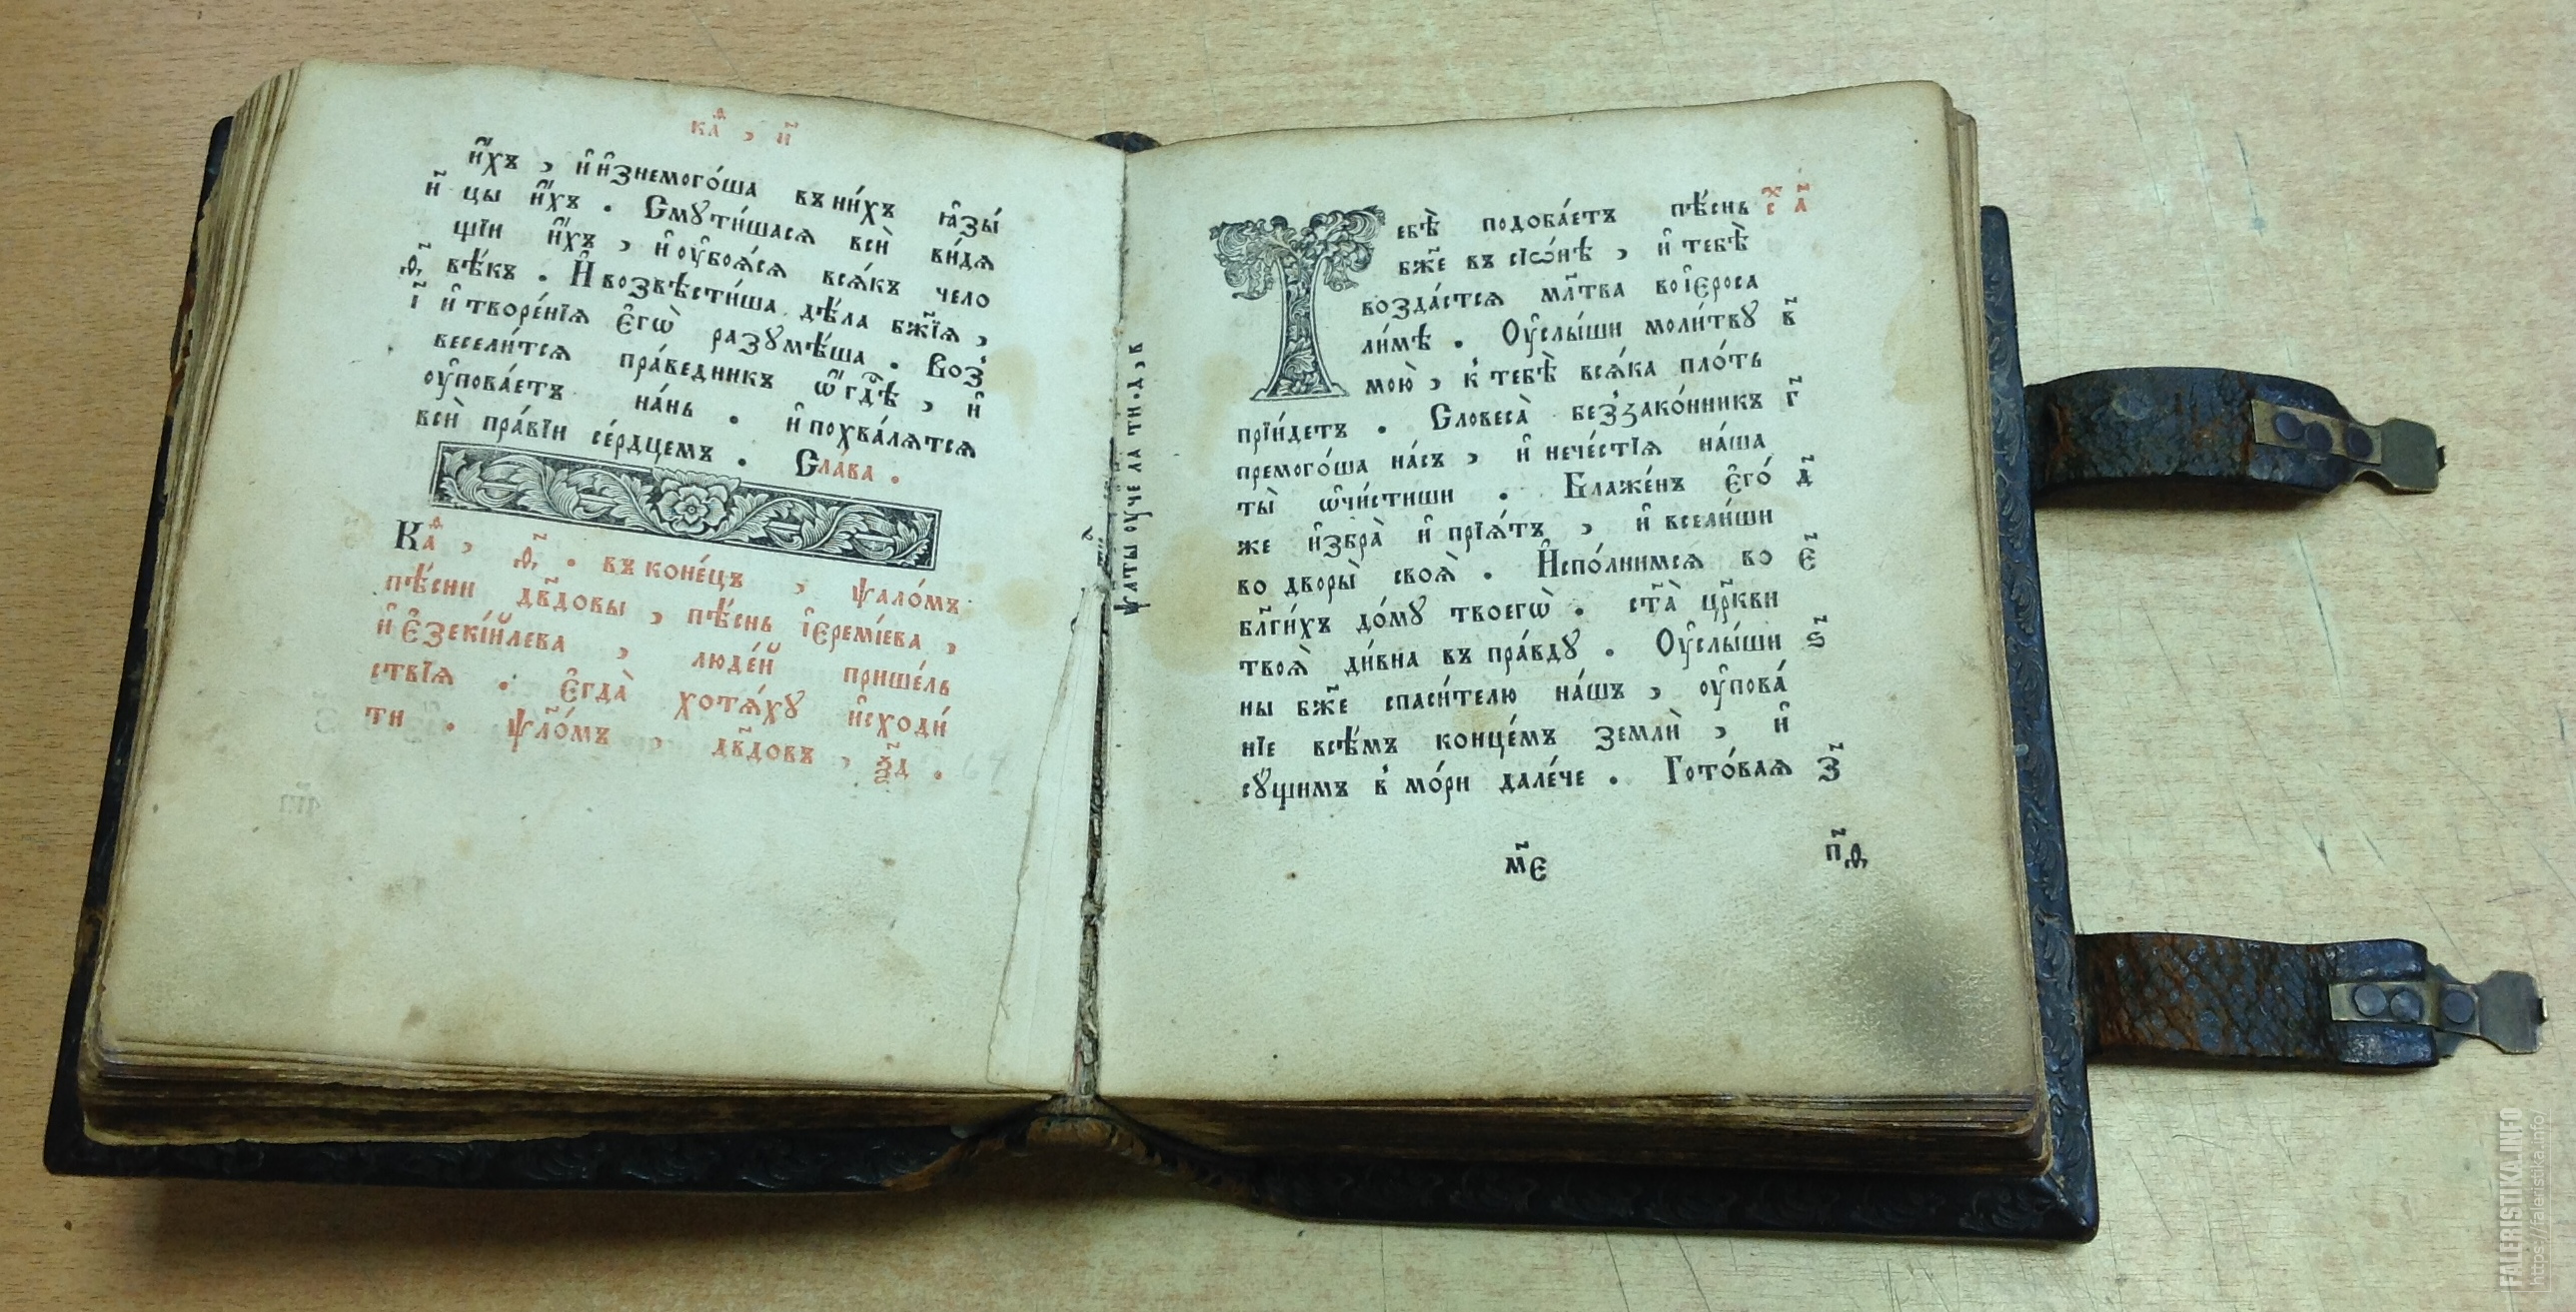 каѳ , и҃
и҆́хъ , и҆ и҆знемого́ша въ ни́хъ ꙗ҆зы́
и҃ цы и҆́хъ . Смꙋти́шасѧ всѝ ви́дѧ
щїи и҆́хъ , и҆ ᲂу҆боѧ́сѧ всѧ́къ чело
ѳ҃ вѣ́къ . И҆ возвѣсти́ша дѣ́ла бж҃їѧ ,
і҃ и҆ творе́нїѧ є҆гѡ̀ разꙋмѣ́ша . Воз
весели́тсѧ пра́ведникъ ѡ҆ гдⷭ҇ѣ , и҆
ᲂу҆пова́етъ на́нь . и҆ похва́лѧтсѧ
всѝ пра́вїи се́рдцемъ . Сла́ва .
Каѳ , ѳ҃ . въ коне́цъ , ѱало́мъ
пѣ́сни дв҃довы , пѣ́снь і҆еремі́ева ,
и҆ є҆зекі́йлева , люде́й прише́ль
ствїѧ . є҆гда̀ хотѧ́хꙋ и҆сходи́
ти . ѱло́мъ , дв҃довъ , ѯ҃д .
ѱалты ᲂуче ла ти . д , в
Тебѣ̀ подоба́етъ пѣ́снь с҃т а҃
бж҃е въ сїѡ́нѣ , и҆ тебѣ̀
возда́стсѧ мл҃тва во і҆ероса
ли́мѣ . Оу҆слы́ши моли́твꙋ в҃
мою̀ , к̾ тебѣ̀ всѧ́ка пло́ть
прїи́детъ . Словеса̀ без̾зако́нникъ г҃
премого́ша на́съ , и҆ нече́стїѧ на́ша
ты̀ ѡ҆чи́стиши . Блаже́нъ є҆го́ д҃
же и҆збра̀ и҆ прїѧ́тъ , и҆ всели́ши
во дворы̀ своѧ̀ . И҆спо́лнимсѧ во є҃
бл҃ги́хъ до́мꙋ твоегѡ̀ . ст҃а̀ цр҃кви
твоѧ̀ ди́вна въ пра́вдꙋ . Оу҆слы́ши ѕ҃
ны бж҃е спаси́телю на́шъ , ᲂу҆пова́
нїе всѣ́мъ конце́мъ землѝ , и҆
сꙋ́щимъ в̾ мо́ри дале́че . Гото́ваѧ з҃
м҃є п҃ѳ
FALERISTIKA.INFO
https://faleristika.info